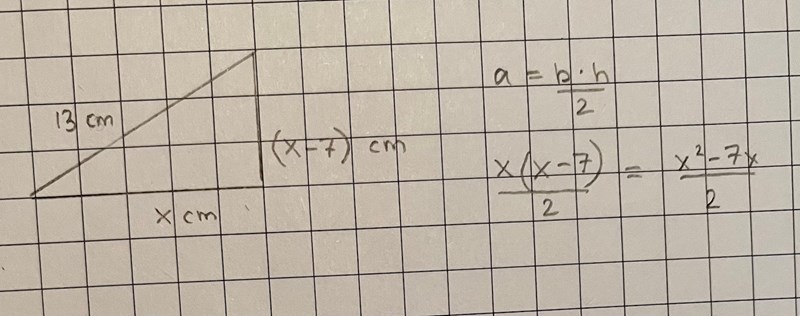 13 cm
(x-7) cm
x cm
a = b·h/2
x(x-7)/2 = x²-7x/2